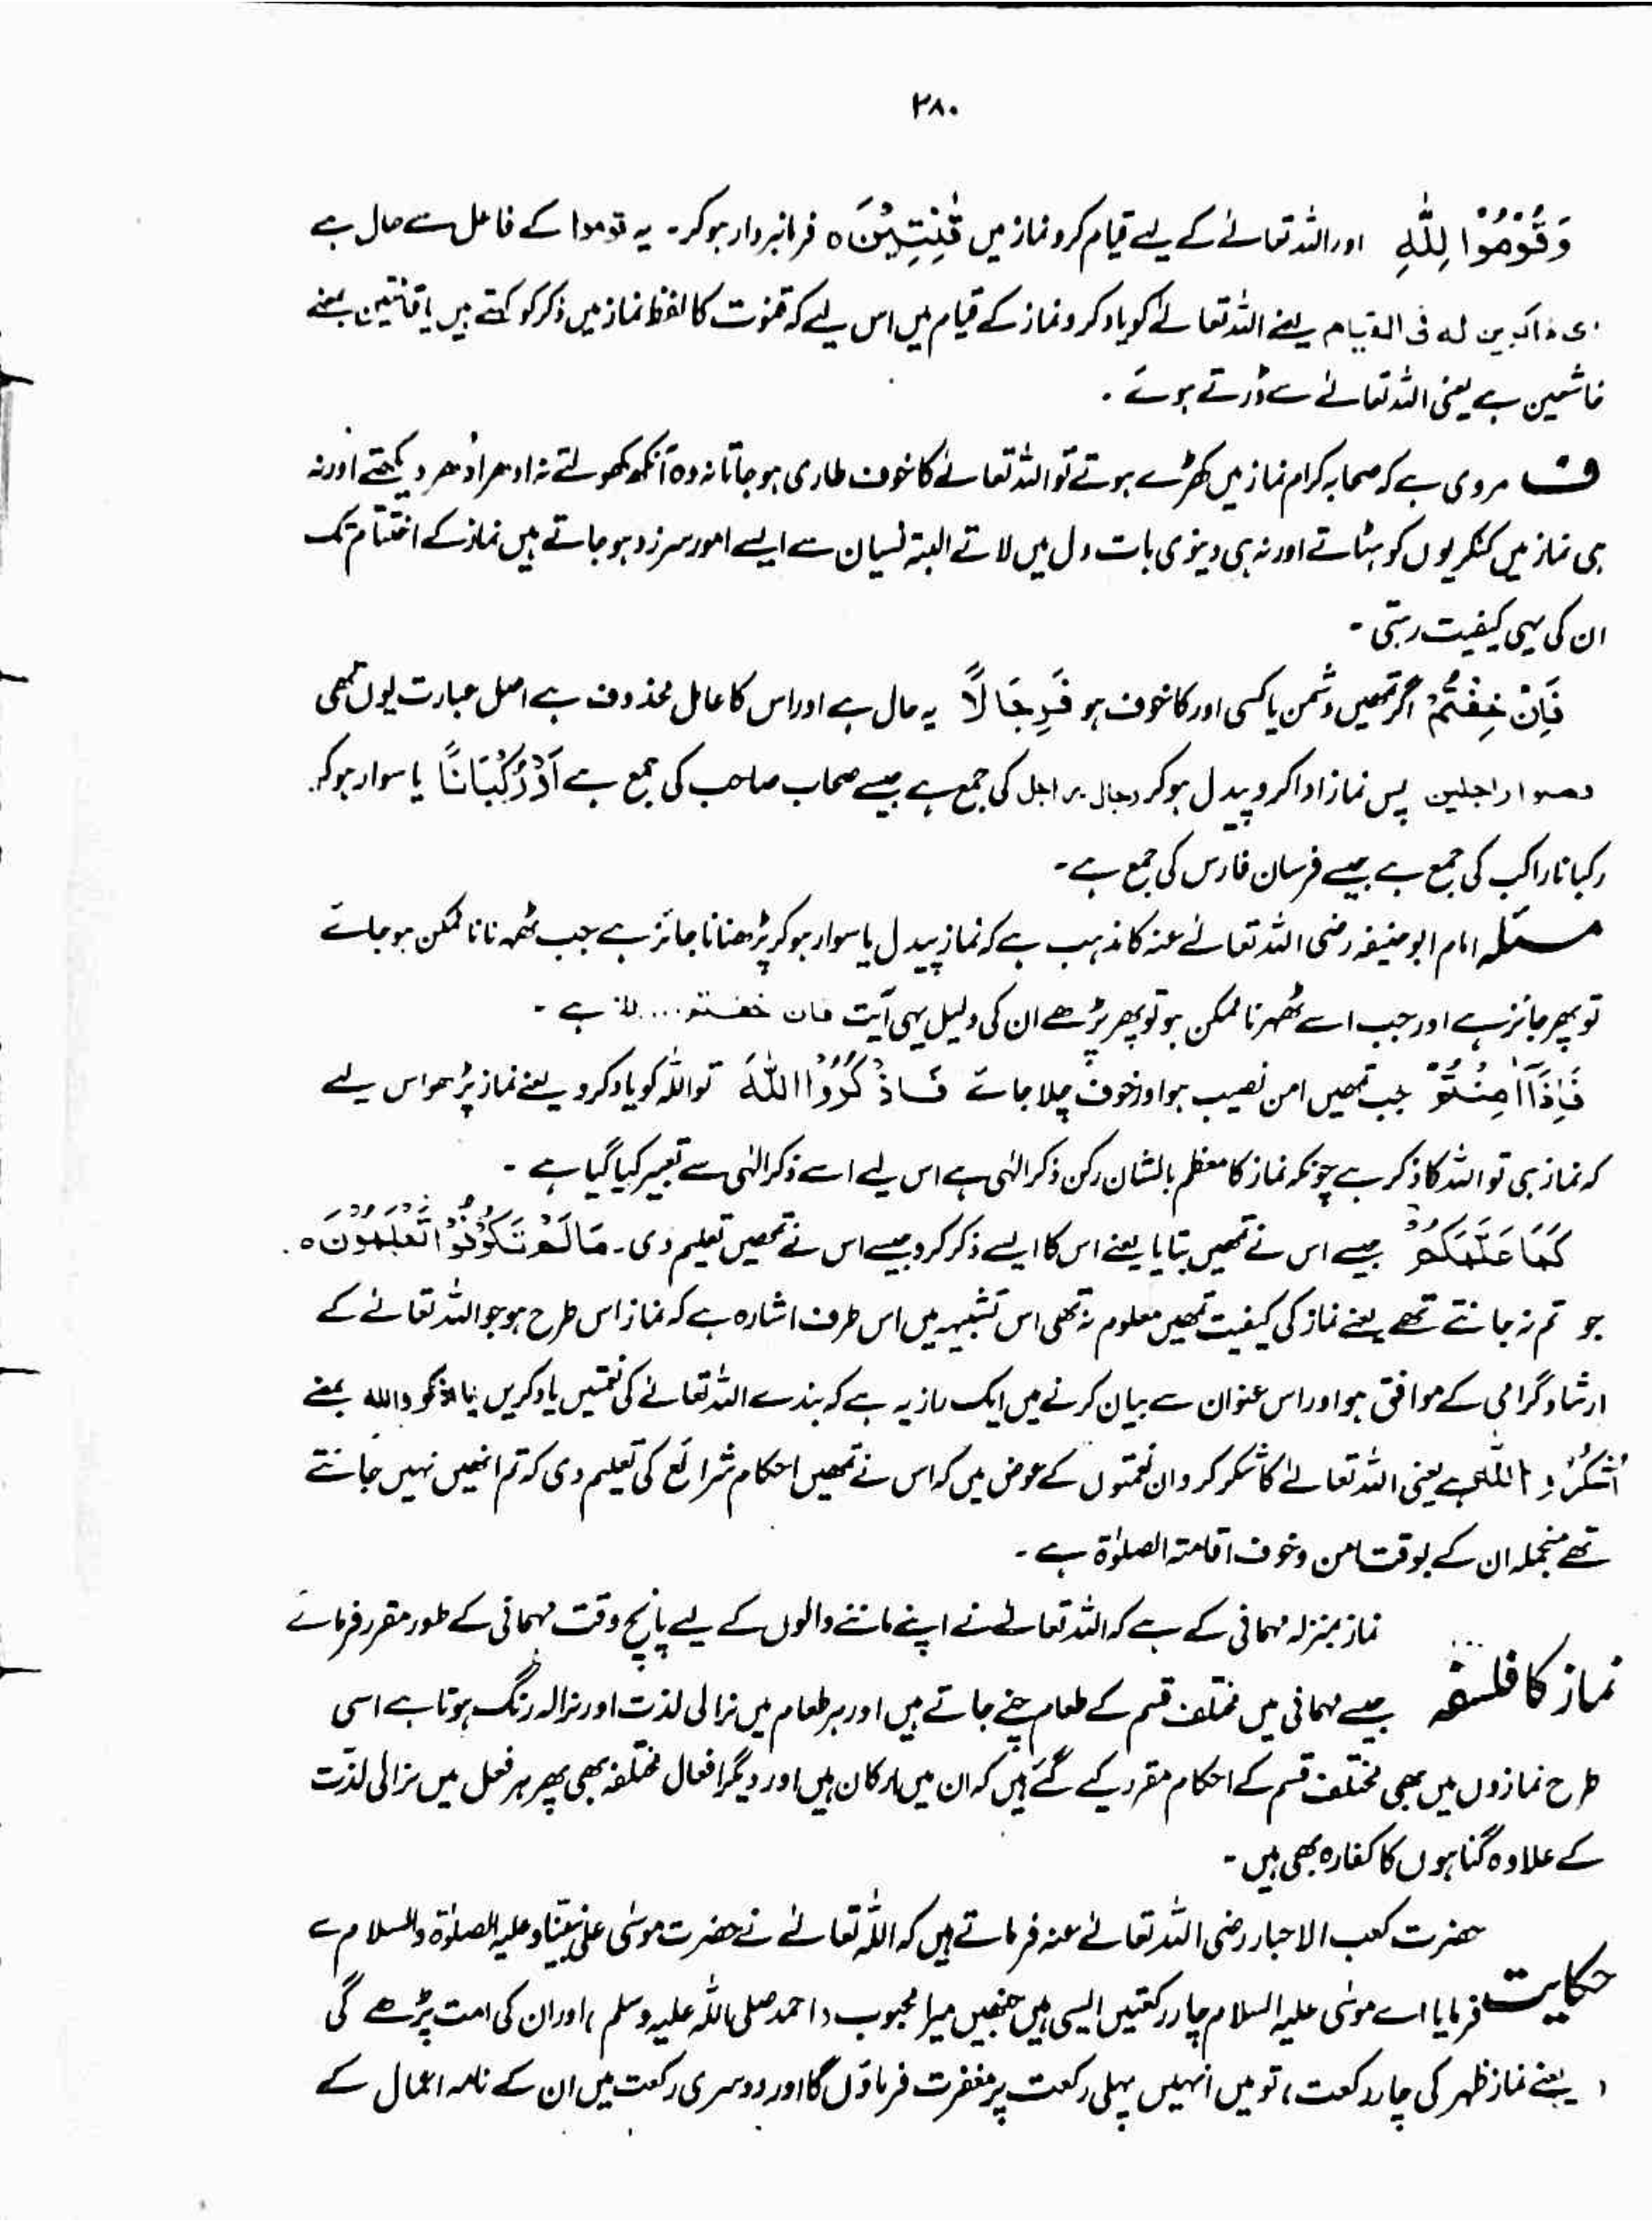 ۲۸۰
وَقُوْمُوْا لِلّٰہِ اور اللہ تعالےٰ کے لیے قیام کرو نماز میں قٰنِتِیْنَ ہ فرمانبردار ہوکر۔ یہ قوموا کے فاعل سے حال ہے
ی ذاکرین لہ فی القیام یعنے اللہ تعالےٰ کو یاد کرو نماز کے قیام میں اس لیے کہ قنوت کا لفظ نماز میں ذکر کو کہتے ہیں یا قانتین بمعنے
خاشعین ہے یعنی اللہ تعالےٰ سے ڈرتے ہوئے ۔
ف مروی ہے کہ صحابہ کرام نماز میں کھڑے ہوتے تو اللہ تعالےٰ کا خوف طاری ہو جاتا نہ وہ آنکھ کھولتے نہ ادھر اُدھر دیکھتے اور نہ
ہی نماز میں کنکریوں کو ہٹاتے اور نہ ہی دینوی بات دل میں لاتے البتہ نسیان سے ایسے امور سرزد ہو جاتے ہیں نماز کے اختتام تک
ان کی یہی کیفیت رہتی ۔
فَاِنْ خِفْتُمْ اگر تمھیں دشمن یا کسی اور کا خوف ہو فَرِجَالًا یہ حال ہے اور اس کا عامل محذوف ہے اصل عبارت یوں تھی
فصلوا راجلین پس نماز ادا کرو پیدل ہوکر رجال ، راجل کی جمع ہے جیسے صحاب صاحب کی جمع ہے اَوْ رُکْبَانًا یا سوار ہوکر
رکبانا راکب کی جمع ہے جیسے فرسان فارس کی جمع ہے ۔
مسئلہ امام ابو حنیفہ رضی اللہ تعالےٰ عنہ کا مذہب ہے کہ نماز پیدل یا سوار ہوکر پڑھنا ناجائز ہے جب ٹھہرنا ناممکن ہو جائے
تو پھر جائز ہے اور جب اسے ٹھہرنا ممکن ہو تو پھر پڑھے ان کی دلیل یہی آیت فان خفتم ... الخ ہے ۔
فَاِذَآ اَمِنْتُمْ جب تمھیں امن نصیب ہو اور خوف چلا جائے فَاذْکُرُوا اللّٰہَ تو اللہ کو یاد کرو یعنے نماز پڑھو اس لیے
کہ نماز ہی تو اللہ کا ذکر ہے چونکہ نماز کا معظم بالشان رکن ذکر الٰہی ہے اس لیے اسے ذکر الٰہی سے تعبیر کیا گیا ہے ۔
کَمَا عَلَّمَکُمْ جیسے اس نے تمھیں بتایا یعنے اس کا ایسے ذکر کرو جیسے اس نے تمھیں تعلیم دی۔ مَا لَمْ تَکُوْنُوْا تَعْلَمُوْنَ ہ
جو تم نہ جانتے تھے یعنے نماز کی کیفیت تمھیں معلوم نہ تھی اس تشبیہہ میں اس طرف اشارہ ہے کہ نماز اس طرح ہو جو اللہ تعالےٰ کے
ارشاد گرامی کے موافق ہو اور اس عنوان سے بیان کرنے میں ایک راز یہ ہے کہ بندے اللہ تعالےٰ کی نعمتیں یاد کریں یا اذکرو اللہ بمعنے
اُشکُرُوا اللّٰہ ہے یعنی اللہ تعالےٰ کا شکر کرو ان نعمتوں کے عوض میں کہ اس نے تمھیں احکام شرائع کی تعلیم دی کہ تم انھیں نہیں جانتے
تھے منجملہ ان کے بوقت امن و خوف اقامتہ الصلوٰۃ ہے ۔
نماز کا فلسفہ نماز بمنزلہ مہمانی کے ہے کہ اللہ تعالےٰ نے اپنے ماننے والوں کے لیے پانچ وقت مہمانی کے طور مقرر فرمائے
جیسے مہمانی میں مختلف قسم کے طعام چنے جاتے ہیں اور ہر طعام میں نرالی لذت اور نرالہ رنگ ہوتا ہے اسی
طرح نمازوں میں بھی مختلف قسم کے احکام مقرر کیے گئے ہیں کہ ان میں ارکان ہیں اور دیگر افعال مختلفہ بھی پھر ہر فعل میں نرالی لذت
کے علاوہ گناہوں کا کفارہ بھی ہیں ۔
حکایت حضرت کعب الاحبار رضی اللہ تعالےٰ عنہ فرماتے ہیں کہ اللہ تعالےٰ نے حضرت موسٰی علی نبینا وعلیہ الصلوٰۃ والسلام سے
فرمایا اے موسٰی علیہ السلام چار رکعتیں ایسی ہیں جنھیں میرا محبوب ( احمد صلی اللہ علیہ وسلم ) اور ان کی امت پڑھے گی
( یعنے نماز ظہر کی چار رکعت ) تو میں انہیں پہلی رکعت پر مغفرت فرماؤں گا اور دوسری رکعت میں ان کے نامہ اعمال کے